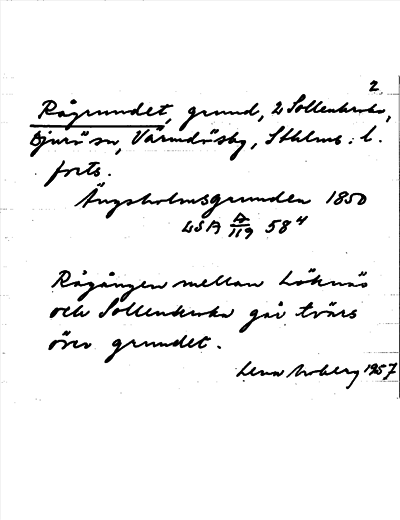 2.
Rågrundet, grund, 2 Sollenkroka,
Djurö sn, Värmdö sbg, Sthlms l.
forts.
Ängsholmsgrunden 1850
LSA A/119 58⁴
Rågången mellan Löknäs
och Sollenkroka går tvärs
över grundet.
Lena Moberg 1957